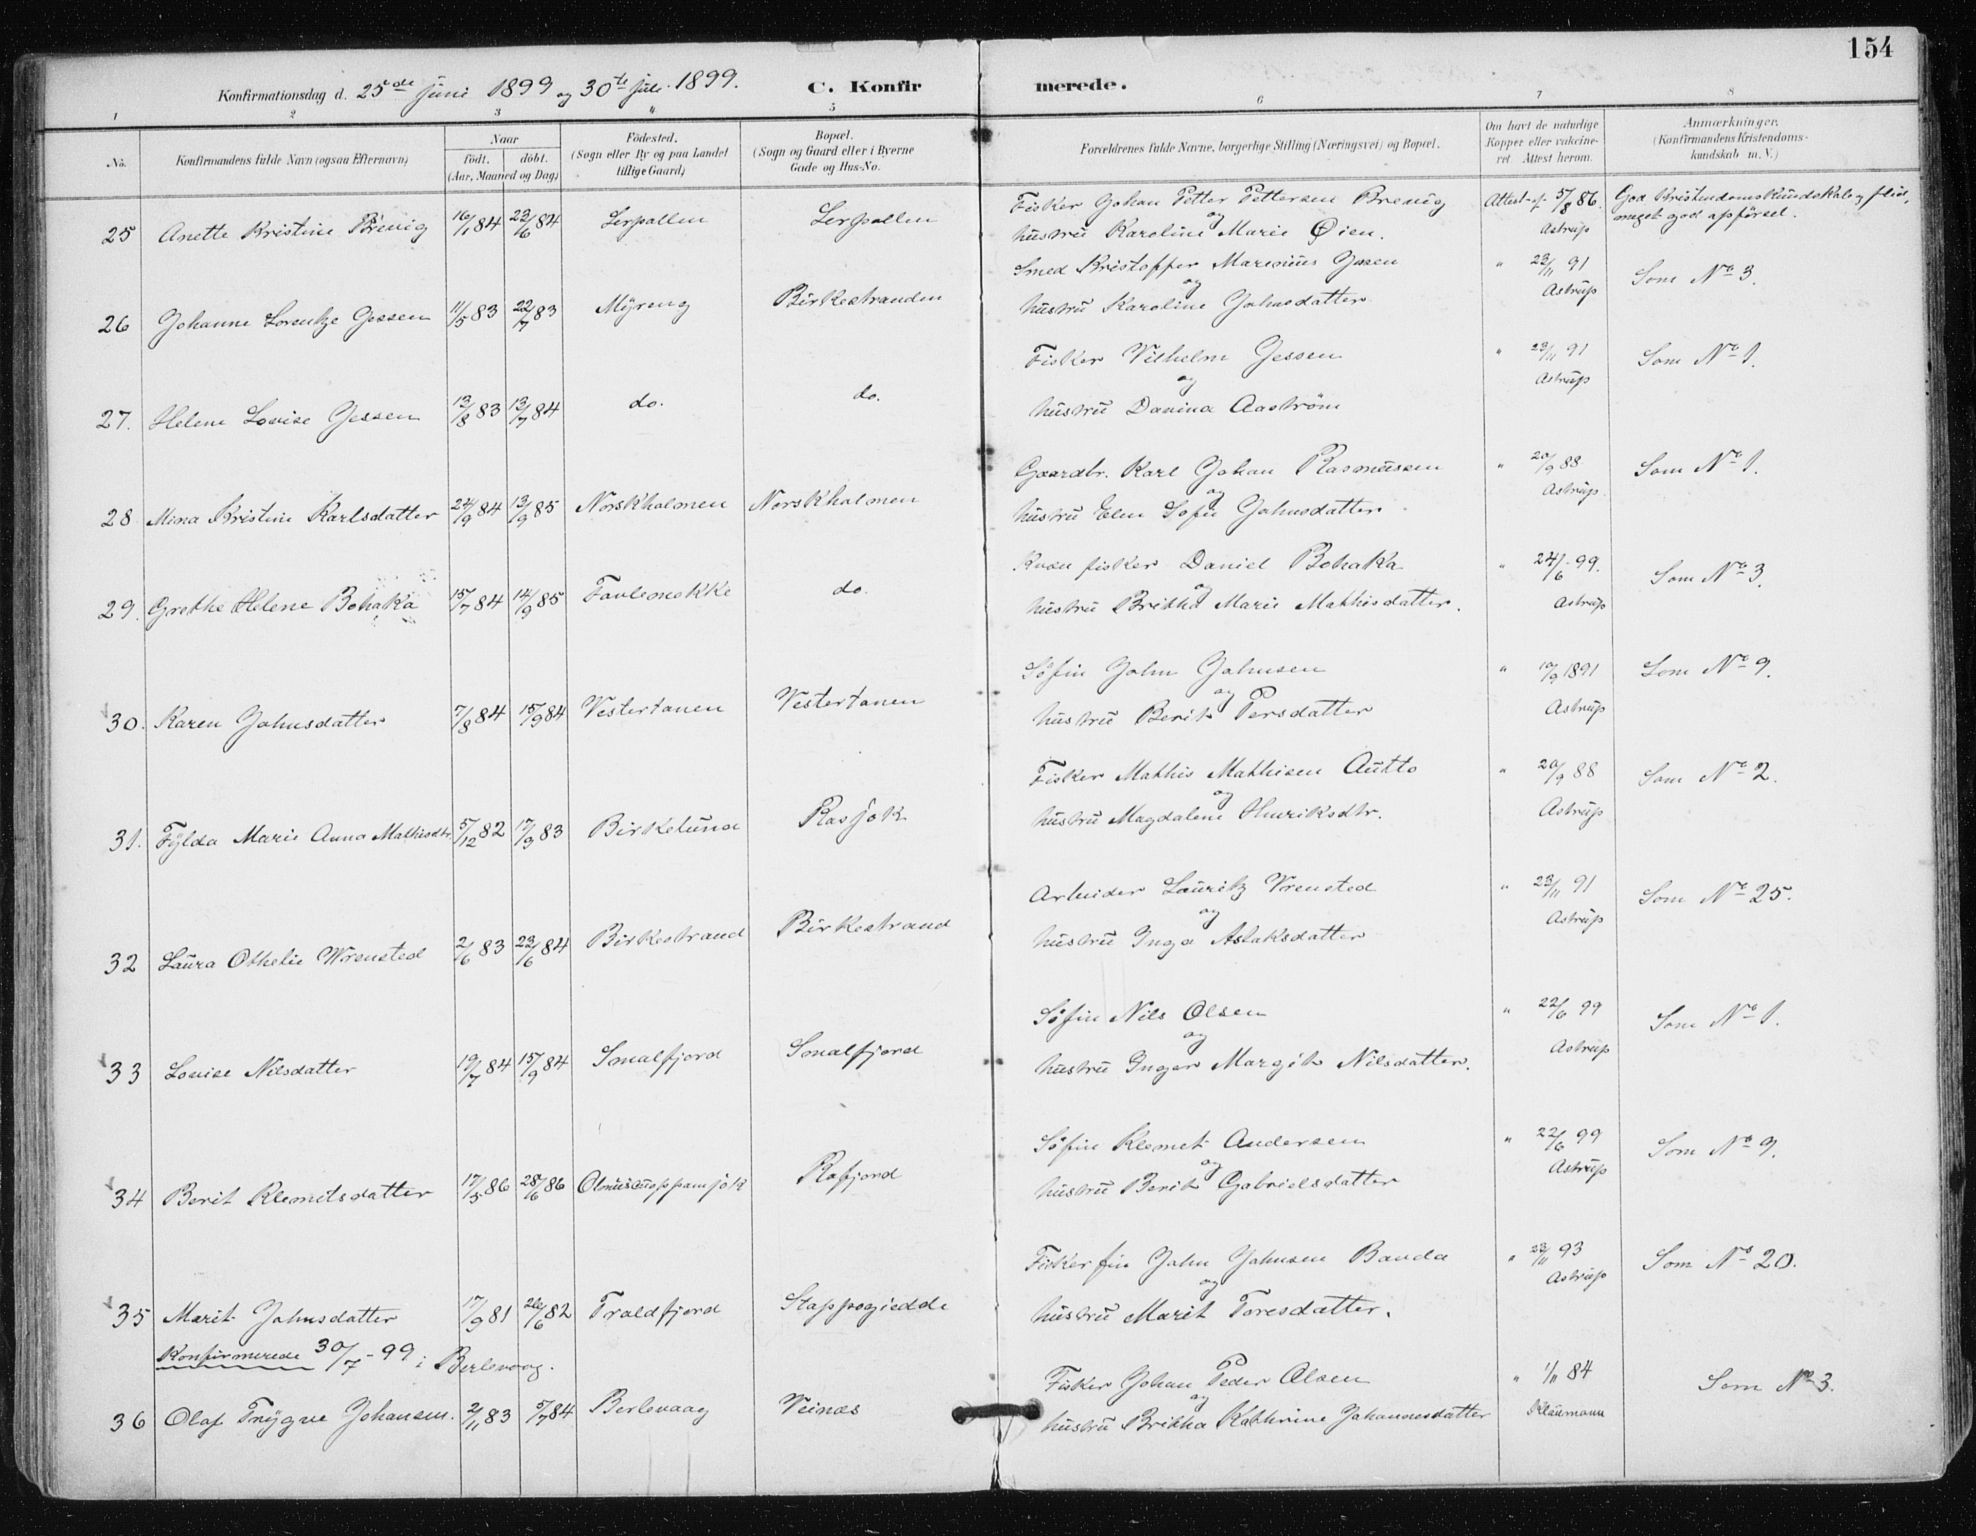 154
Konfirmationsdag d. 25de juni 1899 og 30te juli 1899. C. Konfirmerede.
1 2 3 4 5 6 7 8
No. Konfirmandens fulde Navn (ogsaa Efternavn) Naar født. døbt. (Aar, Maaned og Dag) Fødested. (Sogn eller By og paa Landet tillige Gaard) Bopæl. (Sogn og Gaard eller i Byerne Gade og Hus-No. Forældrenes fulde Navne, borgerlige Stilling (Næringsvei) og Bopæl. Om havt de naturlige Kopper eller vakcineret. Attest herom. Anmærkninger. (Konfirmandens Kristendomskundskab m. V.)
Fisker Johan Petter Pettersen Brenig Attest af 5/8 86. God Kristendomskundskab og flid,
25 Anette Kristine Brenig 16/1 84 23/6 84 Lerpollen Lerpollen og Astrup meget god opførsel.
hustru Karoline Marie Øien.
Smed Kristoffer Marenius Jessen " 23/11 91 Som No 3.
og Astrup
26 Johanne Lorentze Jessen 11/5 83 22/7 83 Myreng Birkestranden hustru Karoline Johnsdatter.
Fisker Vilhelm Jessen " 23/11 91 Som No 1.
og Astrup
27. Helene Lovise Jessen 13/8 83 13/7 84 do. do. hustru Danina Aaström
Gaardbr. Karl Johan Rasmussen " 20/9 88 Som No 1.
og Astrup
28 Mina Kristine Karlsdatter 24/9 84 13/9 85 Norskholmen Norskholmen hustru Elen Sofie Johnsdatter
Kvæn fisker Daniel Bohaka " 24/6 99. Som No 3.
og Astrup
29. Grethe Helene Bohaka 15/7 84 14/9 85 do. hustru Britha Marie Mathisdatter.
Søfin John Johnsen " 10/9 1891 Som No 9.
og Astrup
30. Karen Johnsdatter 7/8 84 15/9 84 Vestertanen Vestertanen hustru Berit Persdatter
Fisker Mathis Mathisen Autto " 20/9 88 Som No 2.
og Astrup
31. Fylda Marie Anna Mathisdtr. 5/12 82 17/9 83 Birkelund Rasjok hustru Magdalene Henriksdtr.
Arbeider Lauritz Vrensted " 23/11 91 Som No 25.
og Astrup
32 Laura Othelie Wrensted 2/6 83 23/6 84 Birkestrand Birkestrand hustru Inga Aslaksdatter
Søfin Nils Olsen " 22/6 99 Som No 1.
og Astrup
33 Lovise Nilsdatter 19/7 84 15/9 84 Smalfjord Smalfjord hustru Inger Margit Nilsdatter.
Søfin Klemet Andersen " 22/6 99 Som No 9.
og Astrup
34 Berit Klemitsdatter 17/5 86 28/6 86 Rafjord hustru Berit Gabrielsdatter
Fisker fin John Johnsen Banda " 23/11 93 Som No 20.
og Astrup
35 Marit Johnsdatter 17/9 81 26/6 82 Troldfjord Stappogiedde hustru Marit Toresdatter.
Konfirmerede 30/7 - 99 i Berlevaag.
Fisker Johan Peder Olsen " 1/11 84 Som No 3.
og Klaumann
36 Olaf Trygve Johansen. 2/11 83 5/7 84 Berlevaag Veinæs hustru Britha Kathrine Johannesdatter